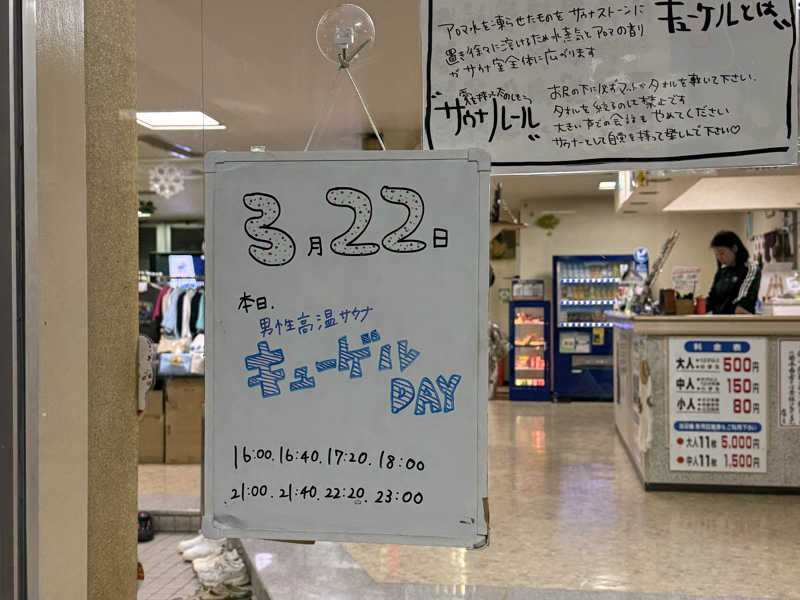 キューゲルとは
アロマ水を凍らせたものをサウナストーンに
置き徐々に溶けるため水蒸気とアロマの香り
がサウナ室全体に広がります
"サウナルール"
お尻の下に必ずマットかタオルを敷いて下さい。
タオルを絞るのして禁止です
大きい声での会話もやめてください
サウナーとして自覚を持って楽しんで下さい♡
3月22日
本日、
男性高温サウナ
キューゲル
DAY
16:00. 16:40. 17:20. 18:00
21:00. 21:40. 22:20. 23:00
料金表
大人 500円
中人 150円
小人 80円
大人11枚 5,000円
中人11枚 1,500円